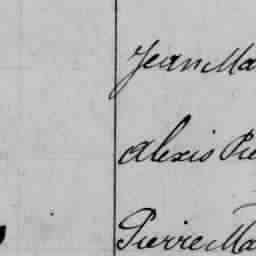 Jean Ma
Alexis Pie
Pierre Ma